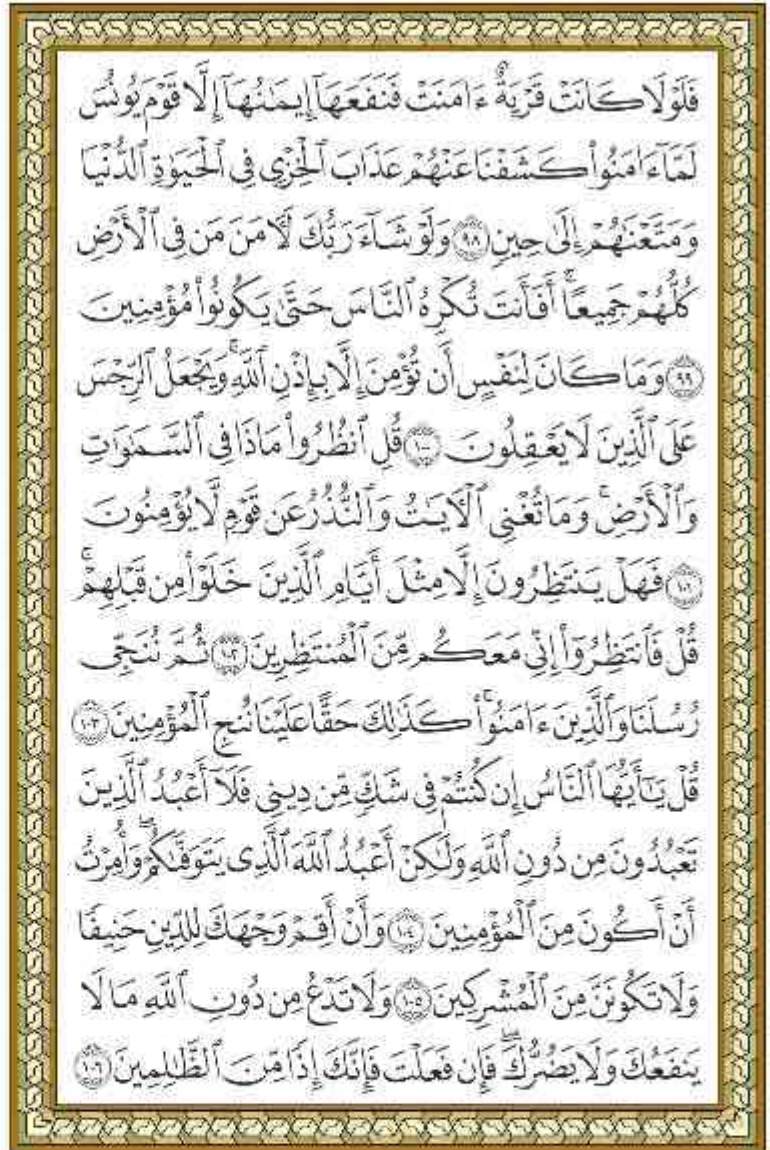 فَلَوْلَا كَانَتْ قَرْيَةٌ ءَامَنَتْ فَنَفَعَهَآ إِيمَٰنُهَآ إِلَّا قَوْمَ يُونُسَ
لَمَّآ ءَامَنُوا۟ كَشَفْنَا عَنْهُمْ عَذَابَ ٱلْخِزْىِ فِى ٱلْحَيَوٰةِ ٱلدُّنْيَا
وَمَتَّعْنَٰهُمْ إِلَىٰ حِينٍ ﴿٩٨﴾ وَلَوْ شَآءَ رَبُّكَ لَءَامَنَ مَن فِى ٱلْأَرْضِ
كُلُّهُمْ جَمِيعًا ۚ أَفَأَنتَ تُكْرِهُ ٱلنَّاسَ حَتَّىٰ يَكُونُوا۟ مُؤْمِنِينَ
﴿٩٩﴾ وَمَا كَانَ لِنَفْسٍ أَن تُؤْمِنَ إِلَّا بِإِذْنِ ٱللَّهِ ۚ وَيَجْعَلُ ٱلرِّجْسَ
عَلَى ٱلَّذِينَ لَا يَعْقِلُونَ ﴿١٠٠﴾ قُلِ ٱنظُرُوا۟ مَاذَا فِى ٱلسَّمَٰوَٰتِ
وَٱلْأَرْضِ ۚ وَمَا تُغْنِى ٱلْءَايَٰتُ وَٱلنُّذُرُ عَن قَوْمٍ لَّا يُؤْمِنُونَ
﴿١٠١﴾ فَهَلْ يَنتَظِرُونَ إِلَّا مِثْلَ أَيَّامِ ٱلَّذِينَ خَلَوْا۟ مِن قَبْلِهِمْ ۚ
قُلْ فَٱنتَظِرُوٓا۟ إِنِّى مَعَكُم مِّنَ ٱلْمُنتَظِرِينَ ﴿١٠٢﴾ ثُمَّ نُنَجِّى
رُسُلَنَا وَٱلَّذِينَ ءَامَنُوا۟ ۚ كَذَٰلِكَ حَقًّا عَلَيْنَا نُنجِ ٱلْمُؤْمِنِينَ ﴿١٠٣﴾
قُلْ يَٰٓأَيُّهَا ٱلنَّاسُ إِن كُنتُمْ فِى شَكٍّ مِّن دِينِى فَلَآ أَعْبُدُ ٱلَّذِينَ
تَعْبُدُونَ مِن دُونِ ٱللَّهِ وَلَٰكِنْ أَعْبُدُ ٱللَّهَ ٱلَّذِى يَتَوَفَّىٰكُمْ ۖ وَأُمِرْتُ
أَنْ أَكُونَ مِنَ ٱلْمُؤْمِنِينَ ﴿١٠٤﴾ وَأَنْ أَقِمْ وَجْهَكَ لِلدِّينِ حَنِيفًا
وَلَا تَكُونَنَّ مِنَ ٱلْمُشْرِكِينَ ﴿١٠٥﴾ وَلَا تَدْعُ مِن دُونِ ٱللَّهِ مَا لَا
يَنفَعُكَ وَلَا يَضُرُّكَ ۖ فَإِن فَعَلْتَ فَإِنَّكَ إِذًا مِّنَ ٱلظَّٰلِمِينَ ﴿١٠٦﴾